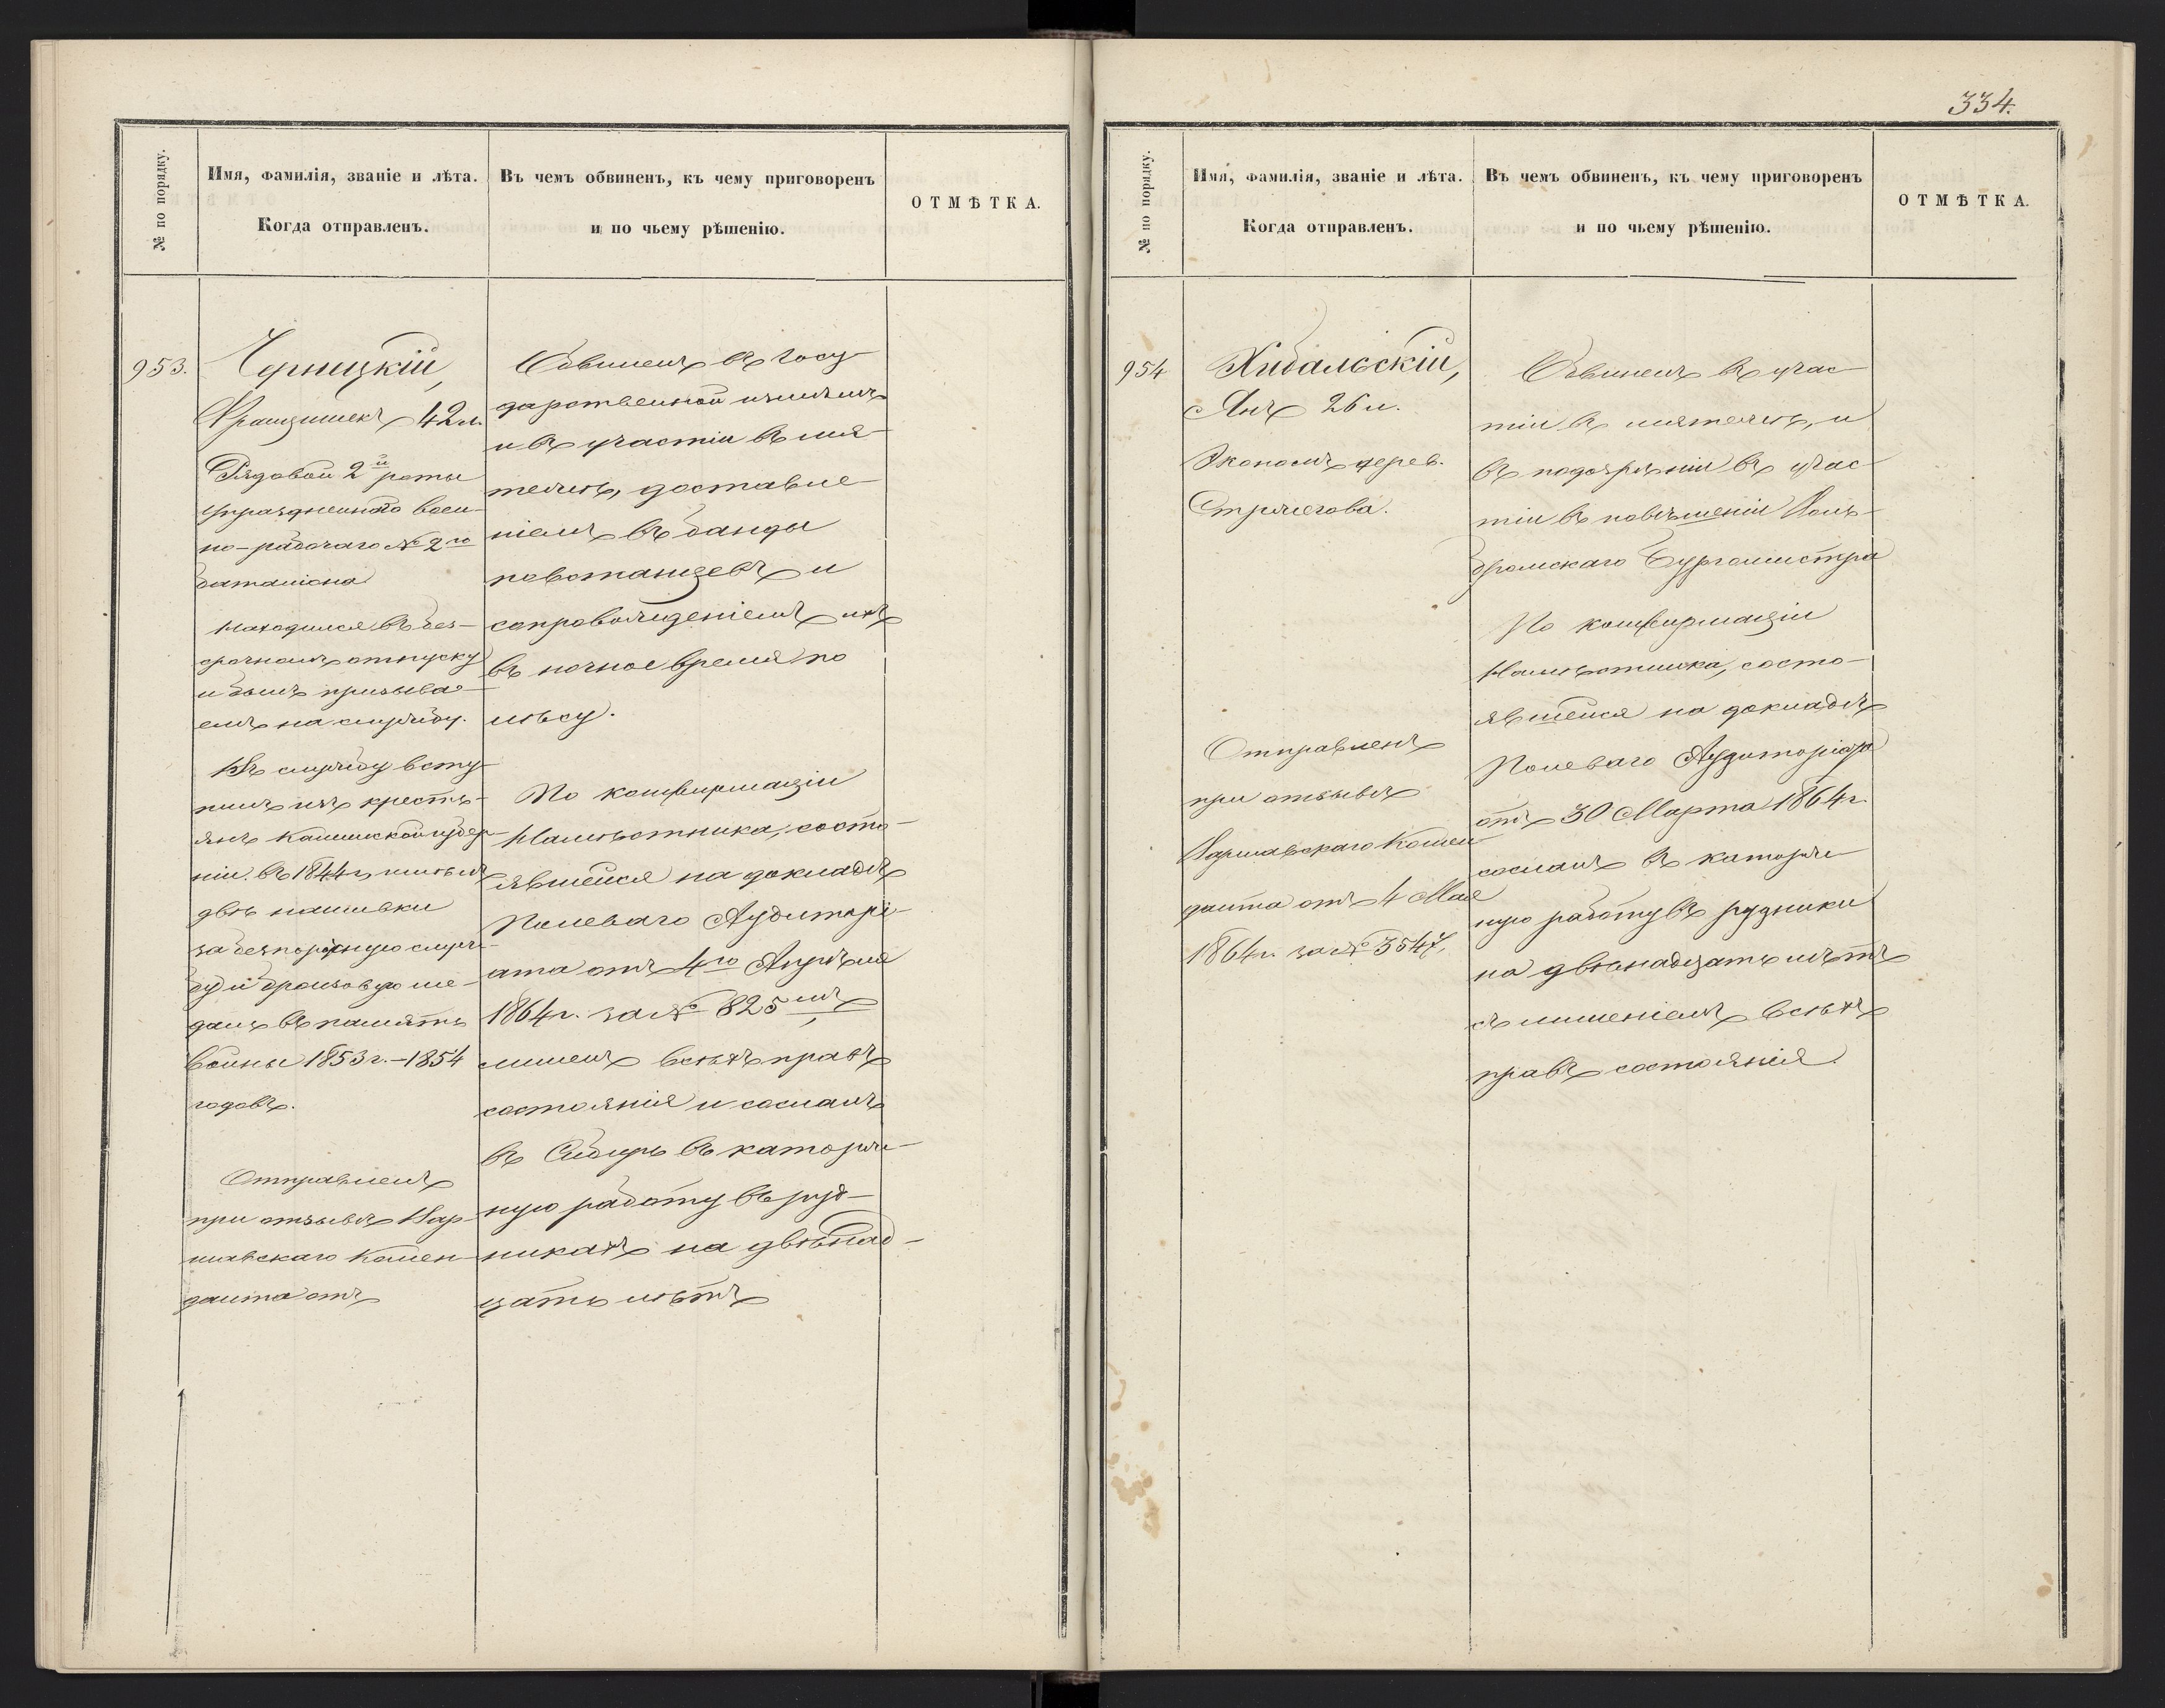 № по порядку.
Имя, фамилія, званіе и лѣта.
Когда отправленъ.
Въ чемъ обвиненъ, къ чему приговоренъ
и по чьему рѣшенію.
ОТМѢТКА.
953.
Чарницкій,
Францишекъ 42 л.
Рядовой 2й роты
упраздненнаго воен-
но-рабочаго № 2го
баталіона
Находился въ без-
срочномъ отпуску
и былъ призыва-
емъ на службу.
Въ службу всту-
пилъ изъ кресть-
янъ Калишской губер-
ніи въ 1844 г., имѣлъ
двѣ нашивки
за безпорочную служ-
бу и бронзовую ме-
даль въ память
войны 1853 г. - 1854
годовъ.
Отправленъ
при отзывѣ Вар-
шавскаго Комен-
данта отъ
Обвиненъ въ Госу-
дарственной измѣнѣ
и въ участіи въ мя-
тежѣ, доставле-
ніемъ въ банды
повстанцевъ и
сопровожденіемъ ихъ
въ ночное время по
лѣсу.
По конфирмаціи
Намѣстника, состо-
явшейся на докладѣ
Полеваго Аудиторі-
ата отъ 4го Апрѣля
1864 г. за № 825мъ,
лишенъ всѣхъ правъ
состоянія и сосланъ
въ Сибирь въ каторж-
ную работу въ руд-
никахъ на двѣнад-
цать лѣтъ
334.
№ по порядку.
Имя, фамилія, званіе и лѣта.
Когда отправленъ.
Въ чемъ обвиненъ, къ чему приговоренъ
и по чьему рѣшенію.
ОТМѢТКА.
954
Хибальскій,
Янъ 26 л.
Экономъ дерев.
Стржегова.
Отправленъ
при отзывѣ
Варшавскаго Комен-
данта отъ 4 Мая
1864 г. за № 3547,
Обвиненъ въ учас-
тіи въ мятежѣ, и
въ подозрѣніи въ учас-
тіи въ повѣшеніи
Бургомистра
По конфирмаціи
Намѣстника, состо-
явшейся на докладѣ
Полеваго Аудиторіата
отъ 30 Марта 1864 г.
сосланъ въ каторж-
ную работу въ рудники
на двѣнадцать лѣтъ
съ лишеніемъ всѣхъ
правъ состоянія.